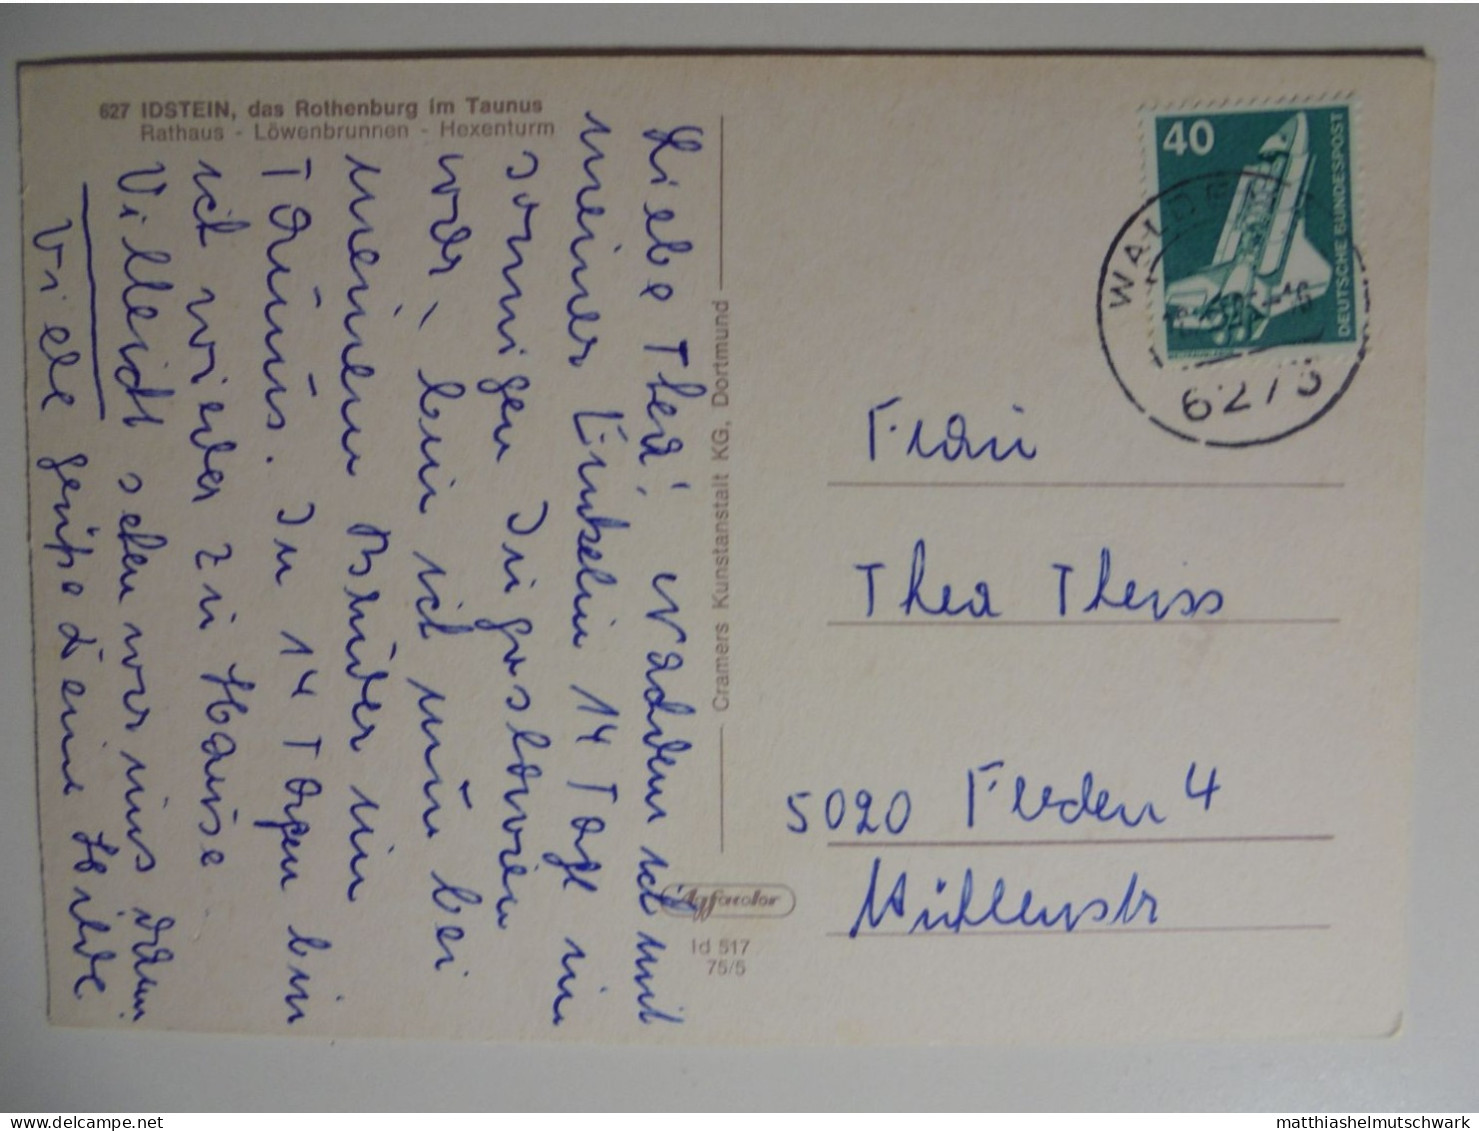 627 IDSTEIN, das Rothenburg im Taunus
Rathaus - Löwenbrunnen - Hexenturm
Liebe Thea, Nachdem ich mit
meiner Enkelin 14 Tage im
sonnigen Jugoslavien
war, bin ich nun bei
meinem Bruder im
Taunus. In 14 Tagen bin
ich wieder zu Hause.
Villeicht sehen wir uns dann.
Viele Grüße Deine Hilde
Cramers Kunstanstalt KG, Dortmund
Agfacolor
Id 517
75/5
40
DEUTSCHE BUNDESPOST
6273
Frau
Thea Theiss
5020 4
Mühlenstr
matthiashelmutschwark